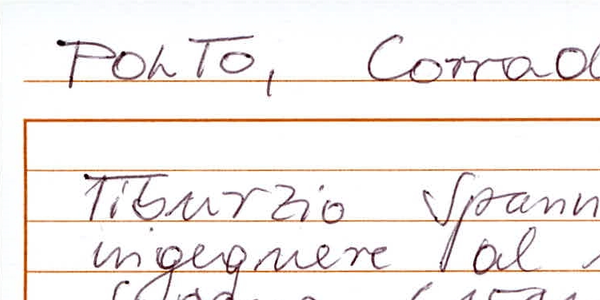 PONTO, Corrad
Tiburzio Spann
ingegnere al